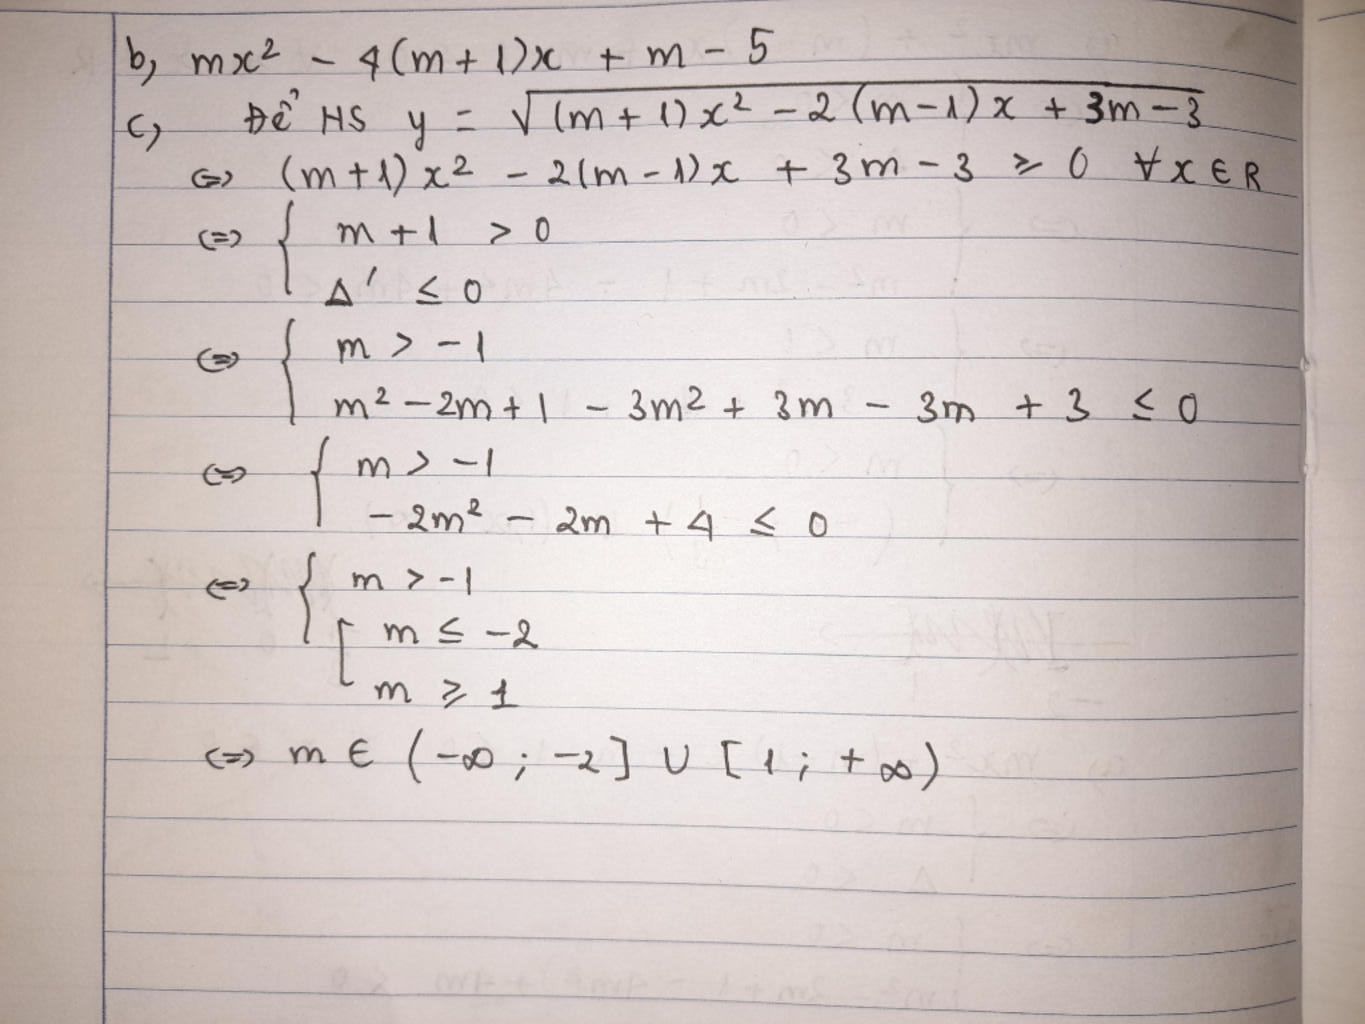 b, mx² - 4(m+1)x + m - 5
c, Để HS y = √(m+1)x² - 2(m-1)x + 3m - 3
⇔ (m+1)x² - 2(m-1)x + 3m - 3 ≥ 0 ∀x ∈ R
⇔ { m+1 > 0
Δ' ≤ 0
⇔ { m > -1
m² - 2m + 1 - 3m² + 3m - 3m + 3 ≤ 0
⇔ { m > -1
-2m² - 2m + 4 ≤ 0
⇔ { m > -1
[ m ≤ -2
m ≥ 1
⇔ m ∈ (-∞; -2] ∪ [1; +∞)